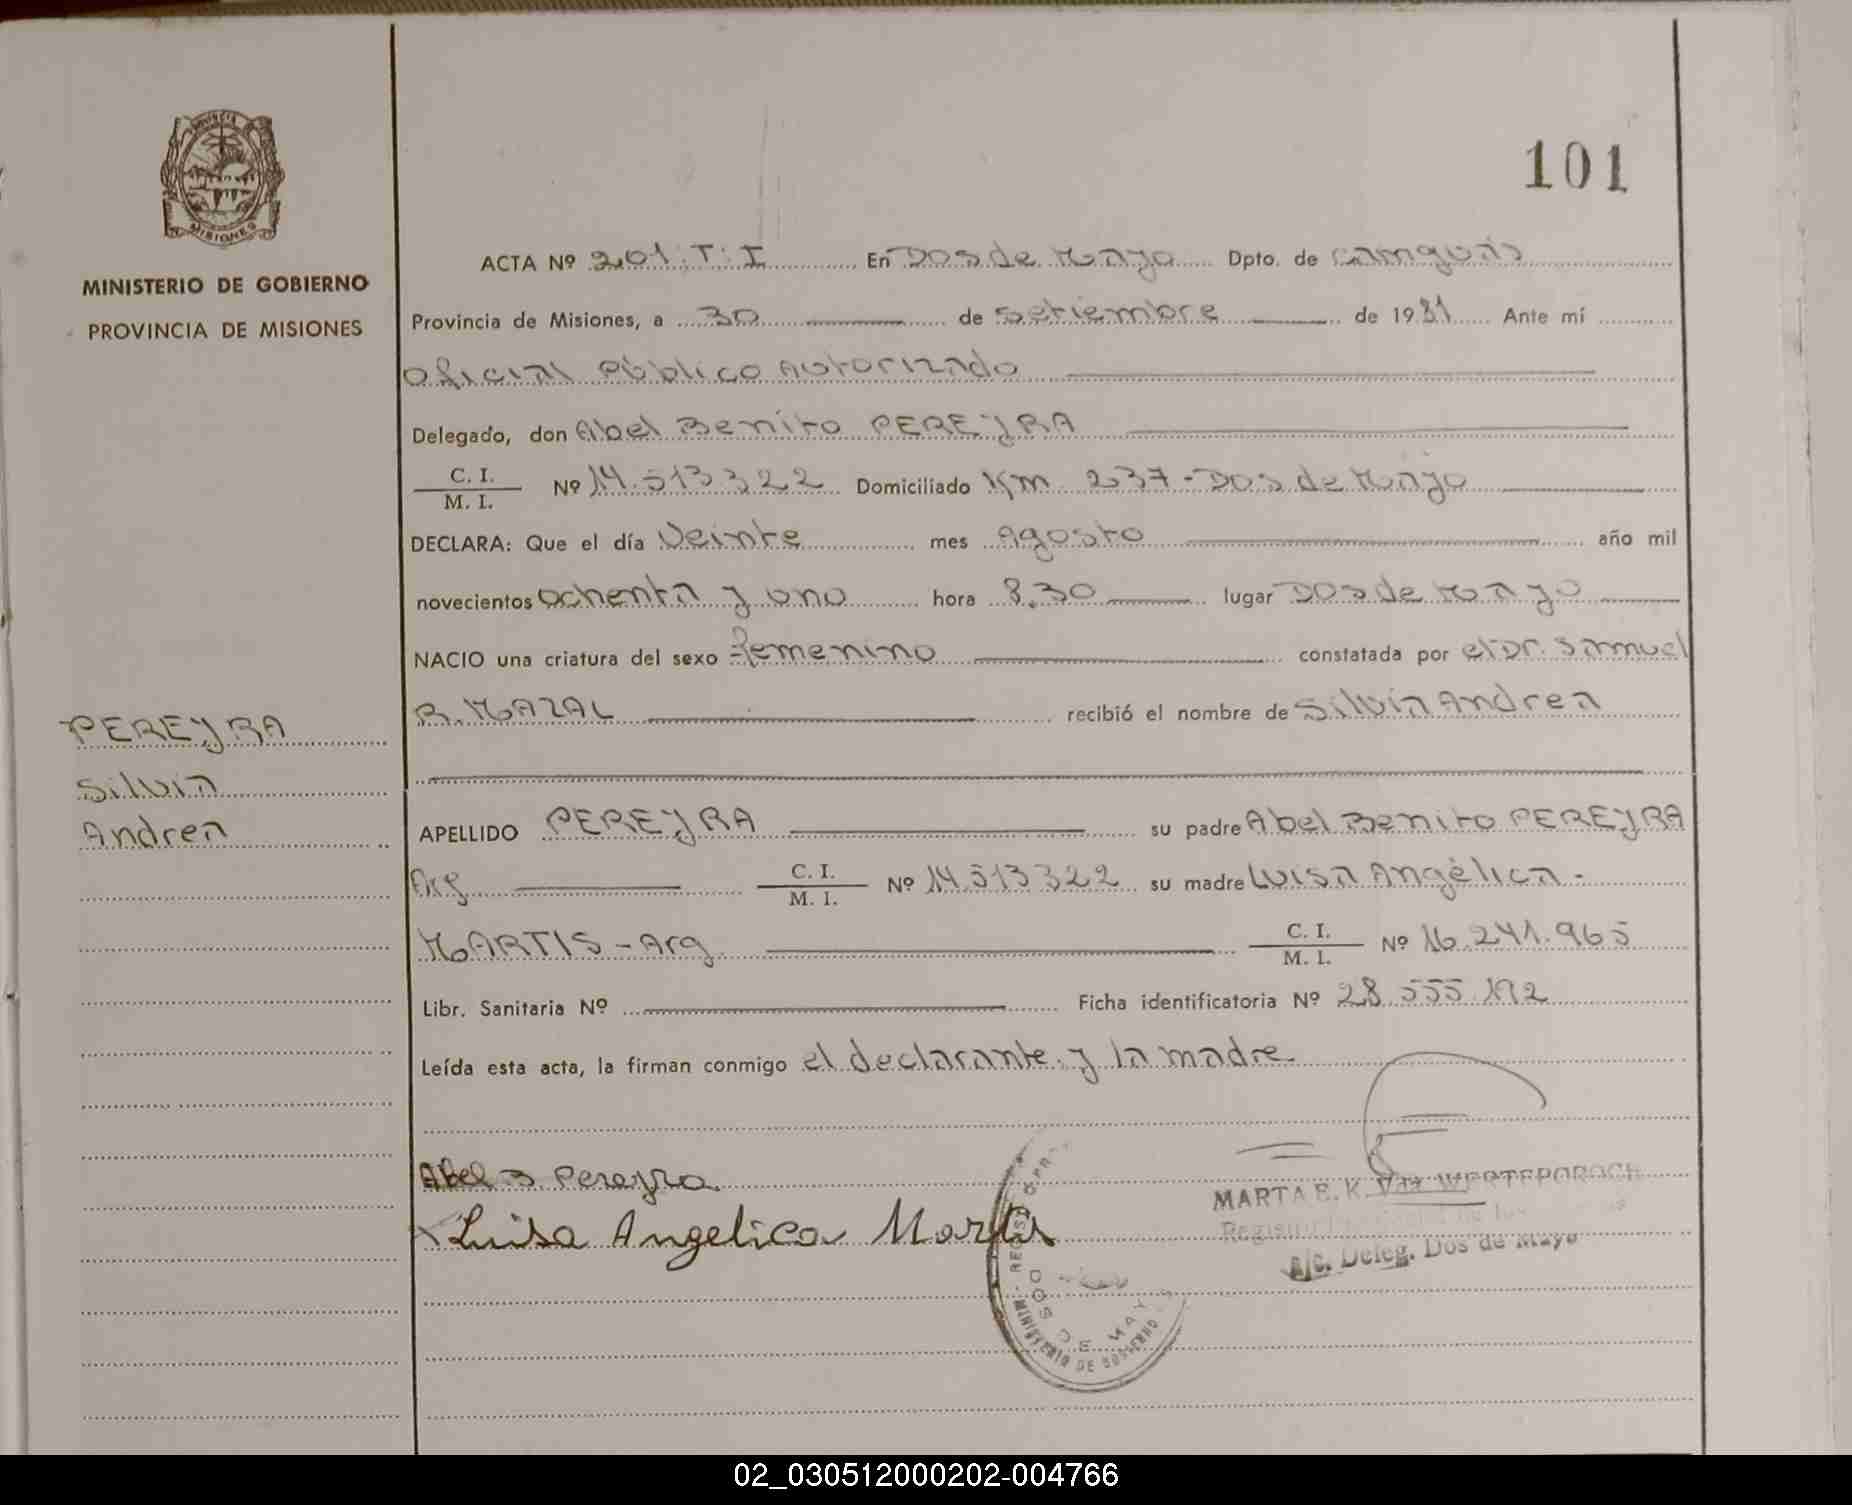 PROVINCIA
MISIONES
MINISTERIO DE GOBIERNO
PROVINCIA DE MISIONES
PEREYRA
Silvia
Andrea
101
ACTA Nº 201.T:I En Dos de Mayo Dpto. de Cainguás
Provincia de Misiones, a 30 de Setiembre de 1981 Ante mí
Oficial Público Autorizado
Delegado, don Abel Benito PEREYRA
C. I.
M. I. Nº 14.513322 Domiciliado Km 237 - Dos de Mayo
DECLARA: Que el día Veinte mes Agosto año mil
novecientos ochenta y uno hora 8,30 lugar Dos de Mayo
NACIO una criatura del sexo femenino constatada por el Dr. Samuel
R. MAZAL recibió el nombre de Silvia Andrea
APELLIDO PEREYRA su padre Abel Benito PEREYRA
Arg C. I.
M. I. Nº 14513322 su madre Luisa Angélica -
MARTIS - Arg. C. I.
M. I. Nº 16.241.965
Libr. Sanitaria Nº Ficha identificatoria Nº 28.555.192
Leída esta acta, la firman conmigo el declarante y la madre
Abel B Pereyra
Luisa Angelica Martis
MARTA E. K.
A/c. Deleg. Dos de Mayo
DOS DE MAYO
MINISTERIO DE GOBIERNO
02_030512000202-004766